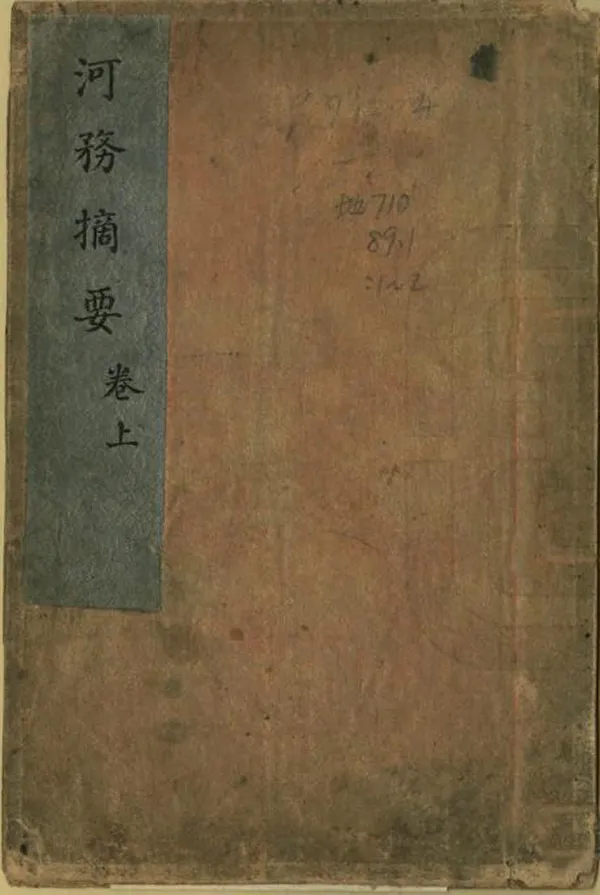 河務摘要
卷上
地710
89.1
:1~2